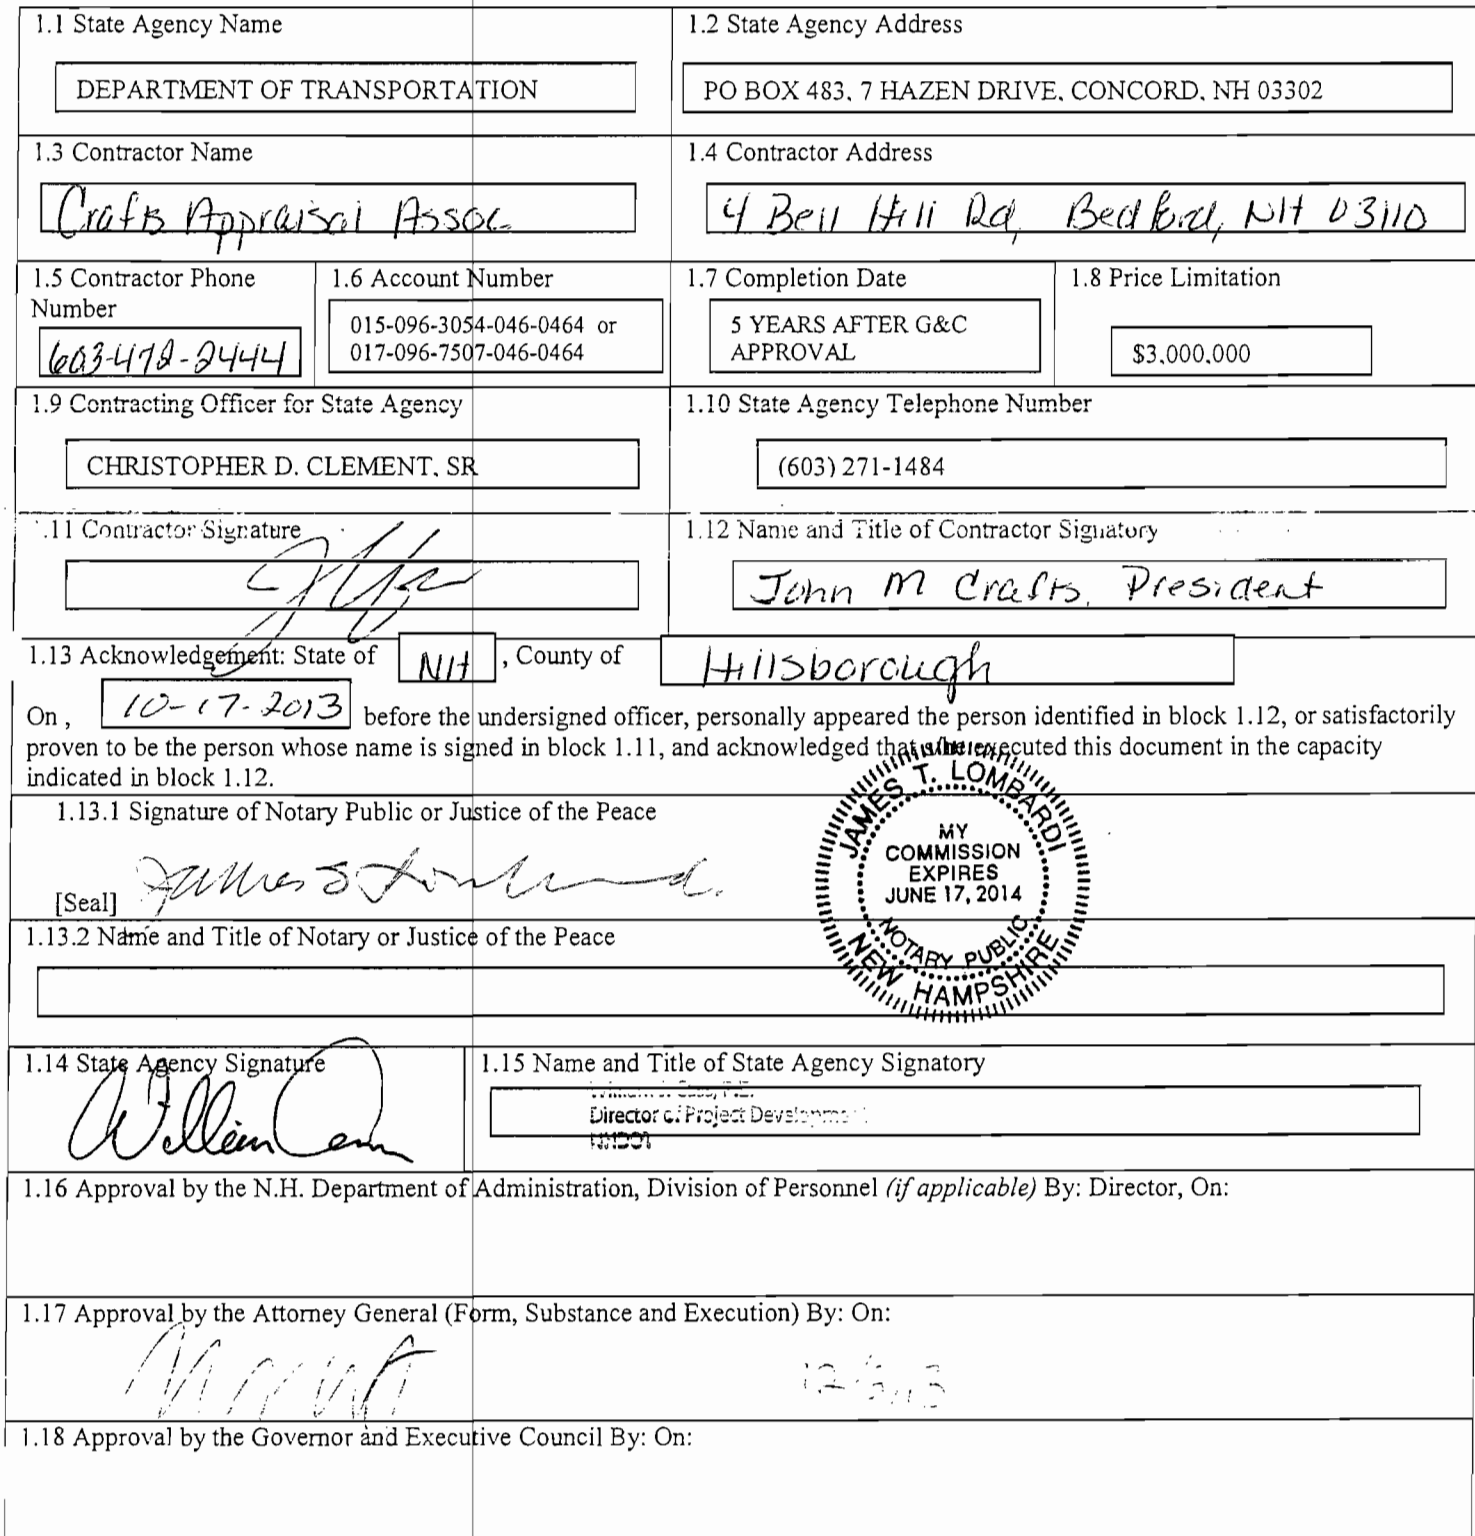 1.1 State Agency Name
DEPARTMENT OF TRANSPORTATION
1.2 State Agency Address
PO BOX 483, 7 HAZEN DRIVE, CONCORD, NH 03302
1.3 Contractor Name
Crafts Appraisal Assoc.
1.4 Contractor Address
4 Bell Hill Rd, Bedford, NH 03110
1.5 Contractor Phone
Number
603-472-2444
1.6 Account Number
015-096-3054-046-0464 or
017-096-7507-046-0464
1.7 Completion Date
5 YEARS AFTER G&C
APPROVAL
1.8 Price Limitation
$3,000,000
1.9 Contracting Officer for State Agency
CHRISTOPHER D. CLEMENT, SR
1.10 State Agency Telephone Number
(603) 271-1484
.11 Contractor Signature
1.12 Name and Title of Contractor Signatory
John M Crafts, President
1.13 Acknowledgement: State of NH , County of Hillsborough
On , 10-17-2013 before the undersigned officer, personally appeared the person identified in block 1.12, or satisfactorily
proven to be the person whose name is signed in block 1.11, and acknowledged that executed this document in the capacity
indicated in block 1.12.
1.13.1 Signature of Notary Public or Justice of the Peace
[Seal]
JAMES T. LOMBARDI
MY
COMMISSION
EXPIRES
JUNE 17, 2014
NOTARY PUBLIC
NEW HAMPSHIRE
1.13.2 Name and Title of Notary or Justice of the Peace
1.14 State Agency Signature
William
1.15 Name and Title of State Agency Signatory
Director of Project Development
NHDOT
1.16 Approval by the N.H. Department of Administration, Division of Personnel (if applicable) By: Director, On:
1.17 Approval by the Attorney General (Form, Substance and Execution) By: On:
1.18 Approval by the Governor and Executive Council By: On: